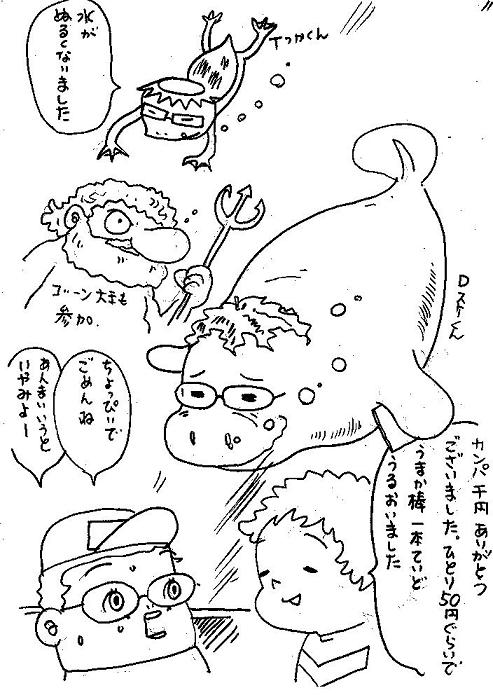 水が
ぬるくないました
Tつかくん
ゴーン大王も
参加.
Dスけくん
カンパ 千円 ありがとう
ございました。ひとり50円ぐらいで
うまか棒 一本ていど
うるおいました
ちょっぴいで
ごめんね
あんまいいうと
いやみよー